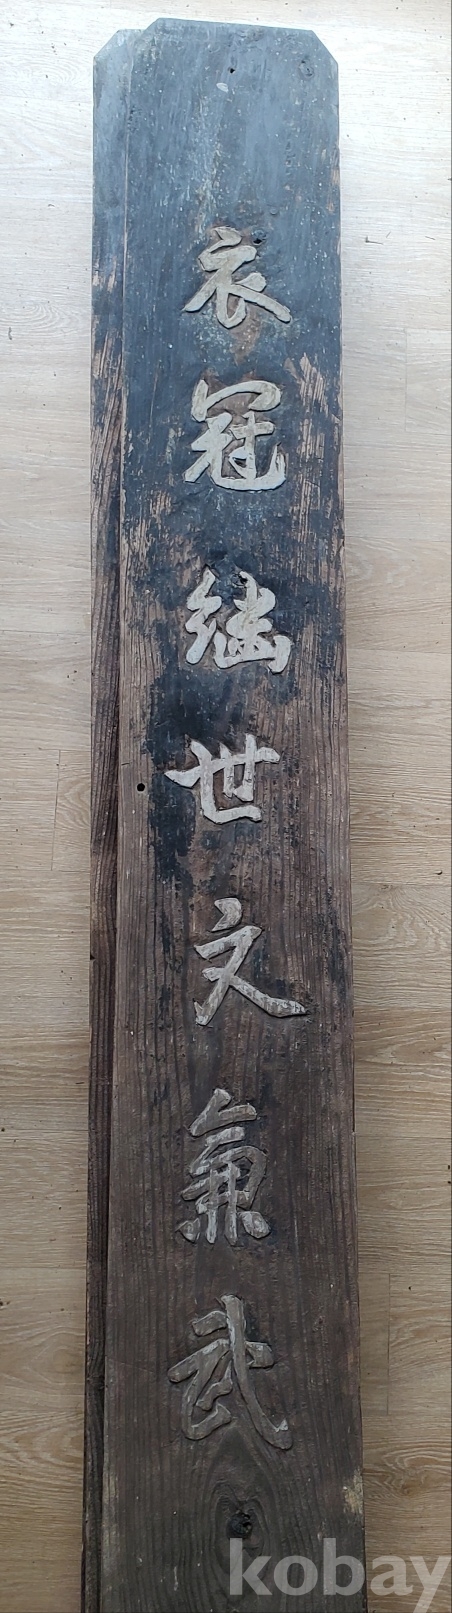 衣冠継世文兼武
kobay